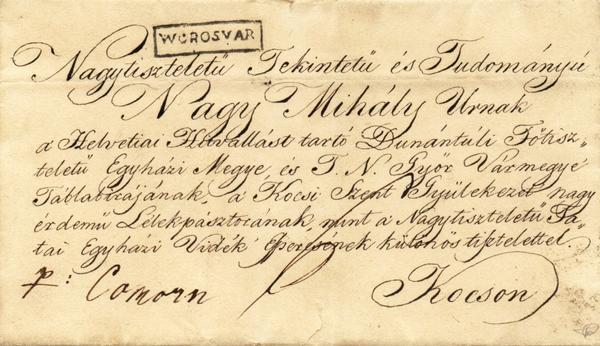 WOROSVAR
Nagytiszteletű Tekintetű és Tudományú
Nagy Mihály Urnak
a Helvetiai Hitvallást tartó Dunántúli Főtisz„
teletű Egyházi Megye, és T. N. Győr Vármegye
Táblabírájának, a Kocsi Szent Gyülekezet nagy
érdemű Lélekpásztorának, mint a Nagytiszteletű Ta„
tai Egyházi Vidék Esperesének különös tisztelettel.
p: Comorn
Kocson